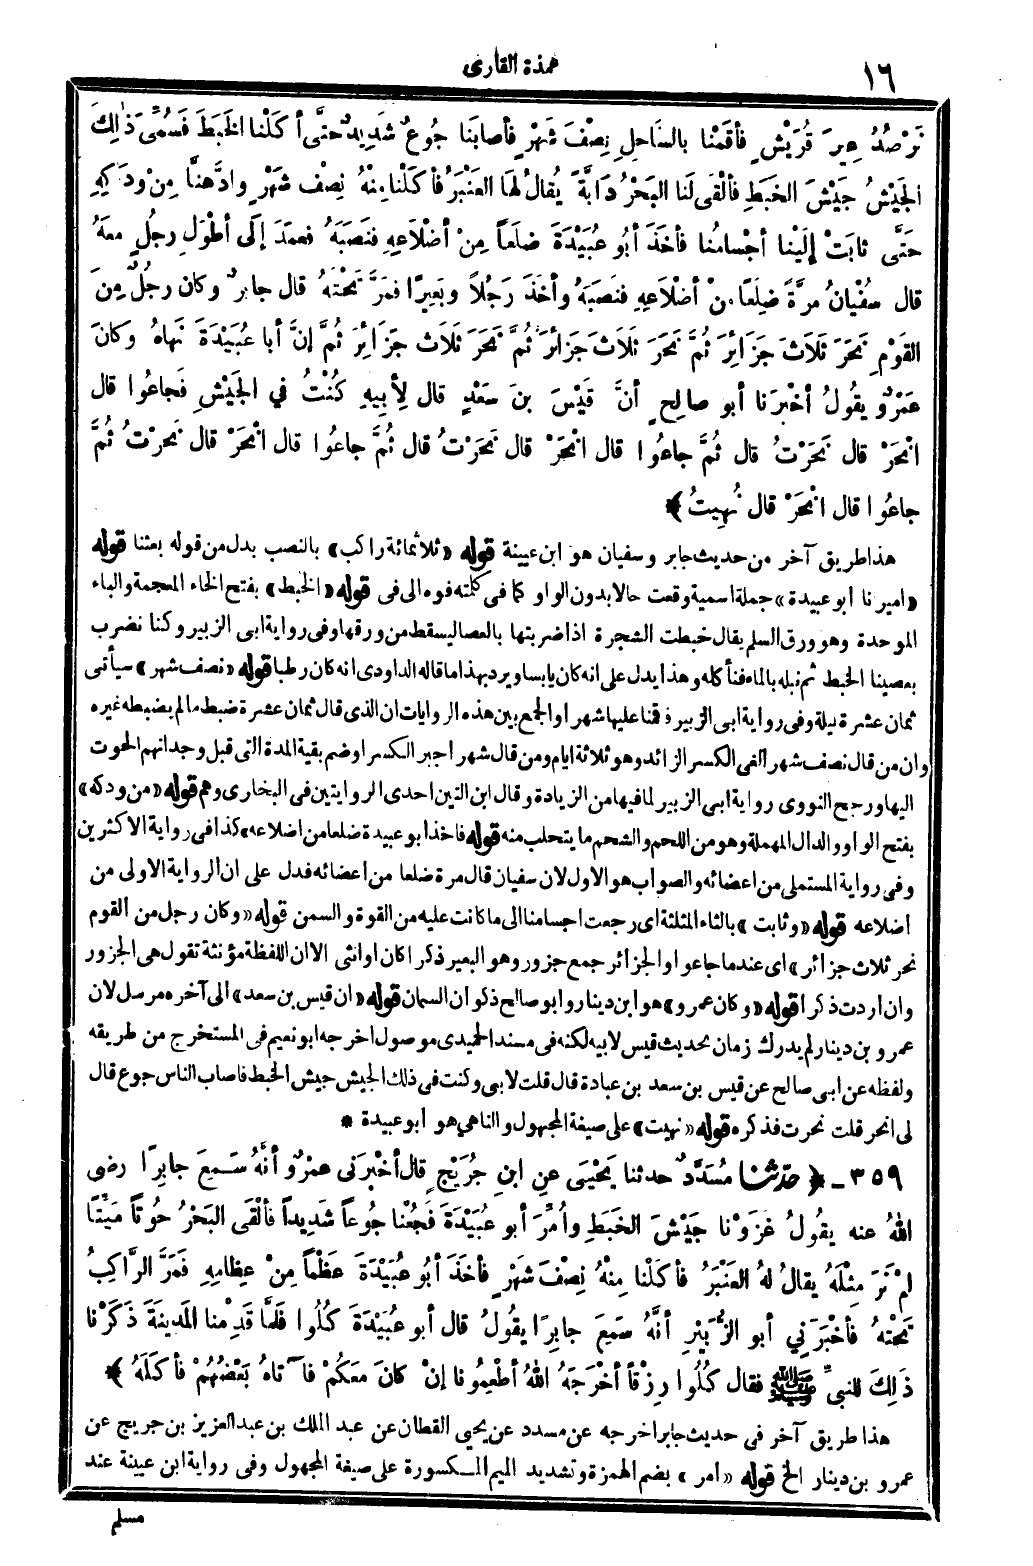 ١٦
عمدة القارى
نَرْصُدُ عِيرَ قُرَيْشٍ فأقَمْنا بالسَّاحِلِ نِصْفَ شَهْرٍ فأصابَنا جُوعٌ شَدِيدٌ حتَّى أكَلْنا الخَبَطَ فَسُمِّيَ ذٰلِكَ
الجَيْشُ جَيْشَ الخَبَطِ فألْقَى لَنا البَحْرُ دَابَّةً يُقالُ لَهَا العَنْبَرُ فأكَلْنا مِنْهُ نِصْفَ شَهْرٍ وادَّهَنَّا مِنْ ودَكِهِ
حَتَّى ثابَتْ إلَيْنا أجْسامُنا فأخَذَ أبُو عُبَيْدَةَ ضِلَعاً مِنْ أضْلَاعِهِ فنَصَبَهُ فعَمَدَ إلَى أطْوَلِ رجُلٍ معَهُ
قال سُفْيانُ مرَّةً ضِلَعًا مِنْ أضْلَاعِهِ فنَصَبَهُ وأخَذَ رَجُلاً وبَعِيرًا فمَرَّ تَحْتَهُ قال جابِرٌ وكان رجُلٌ مِنَ
القَوْمِ نَحَرَ ثَلَاثَ جَزَائِرَ ثُمَّ نَحَرَ ثَلَاثَ جَزَائِرَ ثُمَّ نَحَرَ ثَلَاثَ جَزَائِرَ ثُمَّ إنَّ أبا عُبَيْدَةَ نَهاهُ وكانَ
عَمْرٌو يقُولُ أخْبرَنا أبو صالِحٍ أنَّ قَيْسَ بنَ سَعْدٍ قال لِأبِيهِ كُنْتُ في الجَيْشِ فَجاعُوا قال
انْحَرْ قال نَحَرْتُ قال ثُمَّ جاعُوا قال انْحَرْ قال نَحَرْتُ قال ثُمَّ جاعُوا قال انْحَرْ قال نَحَرْتُ ثُمَّ
جاعُوا قال انْحَرْ قال نُهِيتُ ﴾
هذا طريق آخر من حديث جابر وسفيان هو ابن عيينة قوله «ثلاثمائة راكب» بالنصب بدل من قوله بعثنا قوله
«اميرنا ابو عبيدة» جملة اسمية وقعت حالا بدون الواو كما فى كلمته فوه الى فى قوله «الخبط» بفتح الخاء المعجمة والباء
الموحدة وهو ورق السلم يقال خبطت الشجرة اذا ضربتها بالعصا ليسقط من ورقها وفى رواية ابى الزبير وكنا نضرب
بعصينا الخبط ثم نبله بالماء فنأكله وهذا يدل على انه كان يابسا ويرد بهذا ما قاله الداودى انه كان رطبا قوله «نصف شهر» سيأتى
ثمان عشرة ليلة وفى رواية ابى الزبير فقنا عليها شهر او الجمع بين هذه الروايات ان الذى قال ثمان عشرة ضبط ما لم يضبطه غيره
وان من قال نصف شهر الغى الكسر الزائد وهو ثلاثة ايام ومن قال شهرا جبر الكسر او ضم بقية المدة التى قبل وجدانهم الحوت
اليها ورجح النووى رواية ابى الزبير لما فيها من الزيادة وقال ابن التين احدى الروايتين فى البخارى وهم قوله «من ودكه»
بفتح الواو والدال المهملة وهو من اللحم والشحم ما يتحلب منه قوله فاخذ ابو عبيدة ضلعا من اضلاعه» كذا فى رواية الاكثرين
وفى رواية المستملى من اعضائه والصواب هو الاول لان سفيان قال مرة ضلعا من اعضائه فدل على ان الرواية الاولى من
اضلاعه قوله «وثابت» بالثاء المثلثة اى رجعت اجسامنا الى ما كانت عليه من القوة والسمن قوله «وكان رجل من القوم
نحر ثلاث جزائر» اى عند ما جاعوا والجزائر جمع جزور وهو البعير ذكرا كان او انثى الا ان اللفظة مؤنثة تقول هى الجزور
وان اردت ذكرا قوله «وكان عمرو» هو ابن دينار وابو صالح ذكوان السمان قوله «ان قيس بن سعد» الى آخره مرسل لان
عمرو بن دينار لم يدرك زمان تحديث قيس لابيه لكنه فى مسند الحميدى موصول اخرجه ابو نعيم فى المستخرج من طريقه
ولفظه عن ابى صالح عن قيس بن سعد بن عبادة قال قلت لابى وكنت فى ذلك الجيش جيش الخبط فاصاب الناس جوع قال
لى انحر قلت نحرت فذكره قوله «نهيت» على صيغة المجهول والناهى هو ابو عبيدة *
٣٥٩ ـ ﴿ حدثنا مُسَدَّدٌ حدثنا يَحْيَى عنِ ابنِ جُرَيْجٍ قال أخْبَرَنى عمْرٌو أنَّهُ سَمِعَ جابِرًا رضى
اللهُ عنه يقُولُ غزَوْنا جَيْشَ الخَبَطِ وأُمِّرَ أبو عُبَيْدَةَ فَجُعْنا جُوعاً شَدِيداً فألْقَى البَحْرُ حُوتاً مَيِّتًا
لمْ نَرَ مِثْلَهُ يقالُ لهُ العَنْبَرُ فأكَلْنا مِنْهُ نِصْفَ شَهْرٍ فأخَذَ أبُو عُبَيْدَةَ عَظْماً مِنْ عِظامِهِ فَمَرَّ الرَّاكِبُ
تَحْتَهُ فأخْبَرَنِي أبو الزُّبَيْرِ أنَّهُ سَمِعَ جابِرًا يقُولُ قال أبو عُبَيْدَةَ كُلُوا فلَمَّا قَدِمْنا المَدِينَةَ ذَكَرْنا
ذَلِكَ للنبيِّ ﷺ فقال كُلُوا رِزْقاً أخْرَجَهُ اللهُ أطْعِمُونا إنْ كانَ مَعَكُمْ فآتاهُ بَعْضُهُمْ فأكَلَهُ ﴾
هذا طريق آخر فى حديث جابر اخرجه عن مسدد عن يحيى القطان عن عبد الملك بن عبد العزيز بن جريج عن
عمرو بن دينار الخ قوله «امر» بضم الهمزة وتشديد الميم المكسورة على صيغة المجهول وفى رواية ابن عيينة عند
مسلم